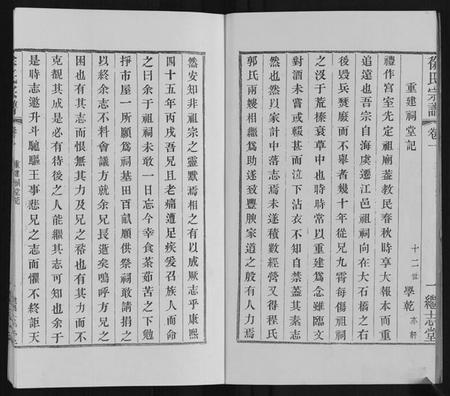 徐氏宗譜 卷一
一 繼志堂
重建祠堂記
十二世 學乾 亦軒
禮作宮室先定祖廟蓋教民春秋時享大報本而重
追遠也吾宗自海虞遷江邑祖祠向在大石橋之右
後毀兵燹廢而不舉者幾十年從兄九霄每傷祖祠
之沒于荒榛衰草中也時時常以重建爲念雖臨文
對酒未嘗或輟甚而泣下沾衣不知自禁蓋其素志
然也然以家計中落志焉未遂積數經營又得程氏
郭氏兩嫂相繼爲助遂致豐腴家道之殷有人力焉
然安知非祖宗之靈默焉相之有以成厥志乎康熙
四十五年丙戌吾兄且老痛遭足疾爰召族人而命
之曰余于祖祠未敢一日忘今幸食荼茹苦之下勉
掙市屋一所願爲祠基田百畝願供祭祠敢請捐之
以終余志不料會議方就余兄長逝矣嗚呼方兄之
困也有其志而恨無其力及兄之裕也有其力而不
克覩其成是必有待後之人能繼其志可知也余于
是時志邀升斗馳驅王事悲兄之志而懼不終詎天
重建祠堂記